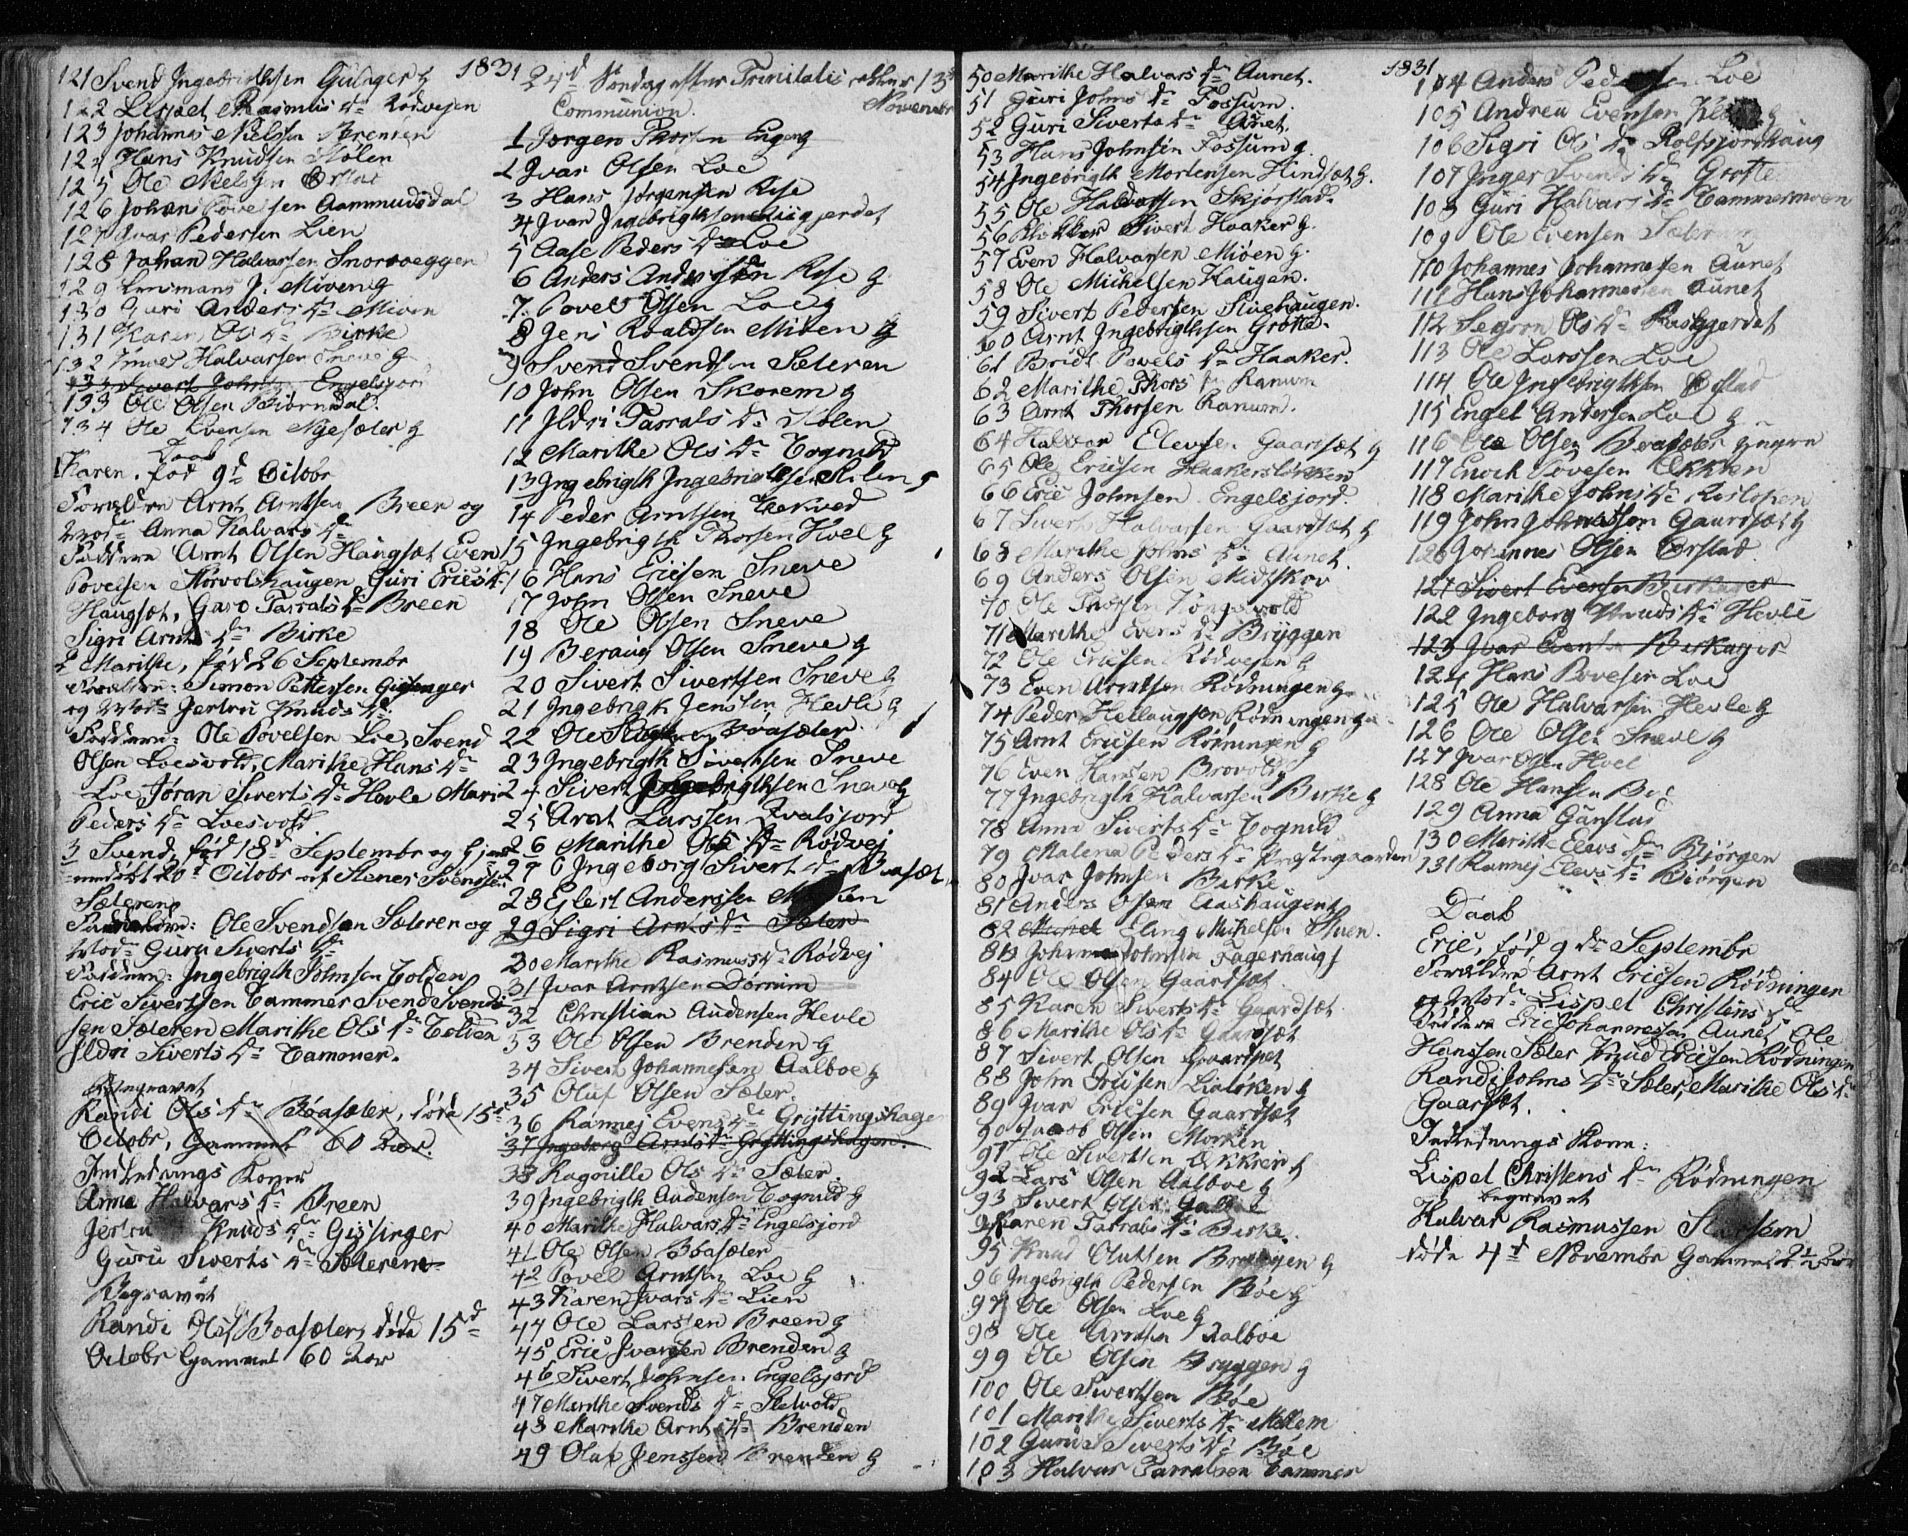 1831
121 Svend Ingebrigthsen Gisinger g
122 Lispet Rasmus Dr Rødvejen
123 Johannes Nielsen Brenden
124 Hans Knudsen Stølen
125 Ole Nielsen Ørstad
126 Johan Povelsen Aammundsdal
127 Ivar Pedersen Lien
128 Johan Halvorsen Snorroeggen
129 J. Mioen g
130 Guri Anders Dr Mioen
131 Karen Ols Dr Birke
132 Halvarsen Sneve g
133 Sivert Johnsen Engelsjord
133 Ole Olsen Biørndal
134 Ole Evensen Nyesæter g
Daab
1 Karen, fød 9d Octobr
Forældre Arnt Arntsen Breen og
Mod. Anna Halvars Dr
Faddere Arnt Olsen Haugset Even
Povelsen Norvolshaugen Guri Erics Dr
Haugset, Garo Tarrals Dr Breen
Sigri Arnts Dr Birke
2 Marithe, fød 26 Septembr
Forældre: Simon Pettersen Gissinger
og Mod. Jertru Knuds Dr
Faddere: Ole Povelsen Loe, Svend
Olsen Loesvold, Marithe Hans Dr
Loe Jøran Siverts Dr Hevle Mari
Peders Dr Loesvold
3 Svend, fød 18d Septembr og hjem
medøbt 20d Octobr af Stener Svendsen
Sæteren
Forældre: Ole Svendsen Sæteren og
Mod. Guru Siverts Dr
Faddere: Ingebrigth Johnsen Tolden
Eric Sivertsen Tammer Svend Svend
sen Sæteren Marithe Ols Dr Tolden
Ildri Siverts Dr Tammer.
Begravet
Randi Ols Dr Boasæter, døde 15d
Octobr, Gammel 60 Aar.
Indlednings Koner
Anne Halvars Dr Breen
Jertru Knuds Dr Gissinger
Guru Siverts Dr Sæteren
Begravet
Randi Ols Boasæter, døde 15d
Octobr Gammel 60 Aar
24d Søndag efter Trinitatis eller 13d
Novembr
Communion.
1 Jørgen Thorsen Eugen g
2 Ivar Olsen Loe
3 Hans Jørgensen Rise
4 Ivar Ingebrigthsen gjerdet
5 Aase Peders Dr Loe
6 Anders Andersen Rise g
7 Povel Olsen Loe g
8 Jens Roaldsen Mioen g
9 Svend Svendsen Sæteren
10 John Olsen Skorem g
11 Ildri Tarrals Dr Stølen
12 Marithe Ols Dr Tognild
13 Ingebrigth Ingebrigthsen Stølen g
14 Peder Arntsen
15 Ingebrigth Thorsen Hoel g
16 Hans Ericsen Sneve
17 John Olsen Sneve
18 Ole Olsen Sneve
19 Beraug Olsen Sneve g
20 Sivert Sivertsen Sneve g
21 Ingebrigth Jensen Hevle g
22 Ole Boasæter
23 Ingebrigth Sivertsen Sneve
24 Sivert Ingebrigthsen Sneve g
25 Arnt Larssen Qvalsjord
26 Marithe Ols Dr Rødvej
27 Ingeborg Sivert Dr
28 Ejlert Anderssen
29 Sigri Arnts Dr Sæter
30 Marithe Rasmus Dr Rødvej
31 Ivar Arntsen Dørrum
32 Christian Audensen Hevle
33 Ole Olsen Brenden g
34 Sivert Johannesen Aalboe g
35 Oluf Olsen Sæter.
36 Rannej Evens Dr Gryttingshagen
37 Ingeborg Arnts Dr Gryttingshagen
38 Ragnille Ols Dr Sæter
39 Ingebrigth Audensen Tognild g
40 Marithe Halvars Dr Engelsjord
41 Ole Olsen Boasæter
42 Povel Arntsen Loe g
43 Karen Ivars Dr Lien
44 Ole Larssen Breen g
45 Eric Ivarsen Brenden g
46 Sivert Johnsen Engelsjord
47 Marithe Svends Dr Sletvold
48 Marithe Arnts Dr Brenden
49 Oluf Jenssen Brenden g
50 Marithe Halvars Dr Aunet.
51 Guri Johns Dr Fossum.
52 Guri Siverts Dr Aunet.
53 Hans Johnsen Fossum g.
54 Ingebrigth Mortensen Hindsæt g.
55 Ole Haldorsen Skjørstad.
56 Sivert Haaker g.
57 Even Halvarsen Mioen g.
58 Ole Michelsen Haugen.
59 Sivert Pedersen Stuehaugen.
60 Arnt Ingebrigthsen Grøtte.
61 Bridt Povels Dr Haaker.
62 Marithe Thors Dr Ranum
63 Arnt Thorsen Ranum.
64 Halvor Elevsen Gaardsæt g
65 Ole Ericsen Haakersløkken
66 Eric Johnsen Engelsjord
67 Sivert Halvarsen Gaardsæt g
68 Marithe Johns Dr Aunet.
69 Anders Olsen Midtskov
70 Ole Thorsen Kongsvold
71 Marithe Evens Dr Bryggen
72 Ole Ericsen Rødvejen g
73 Even Arntsen Rødningen g
74 Peder Hellaugsen Rødningen g
75 Arnt Ericsen Rødningen g
76 Even Hansen Brovold
77 Ingebrigth Halvarsen Birke g
78 Anne Siverts Dr Tognild
79 Malena Peders Dr Præstegaarden
80 Ivar Johnsen Birke
81 Anders Olsen Aashaugen g
82 Eling Michelsen Stuen.
83 Johannes Johnsen Fagerhaug g
84 Ole Olsen Gaardsæt
85 Karen Siverts Dr Gaardsæt
86 Marithe Ols Dr Gaardsæt
87 Sivert Olsen Gaardsæt
88 John Ericsen Lialøken g
89 Ivar Ericsen Gaardsæt
90 Jacob Olsen Morken
91 Ole Sivertsen Ækkren g
92 Lars Olsen Aalboe g
93 Sivert Olsen Aalboe
94 Karen Tarrals Dr Birke.
95 Knud Olufsen Bryggen g
96 Ingebrigth Pedersen Bøe g
97 Ole Olsen Loe g
98 Ole Arntsen Aalboe
99 Ole Olsen Bryggen g
100 Ole Sivertsen Bøe
101 Marithe Siverts Dr Mellem
102 Guru Siverts Dr Bøe
103 Halvar Tarralsen Tammer
1831
104 Anders Pedersen Loe
105 Andrea Evensen g
106 Sigri Ols Dr Rolfsjordhaug
107 Inger Svends Dr Grøtte
108 Guri Halvars Dr Tammermoen
109 Ole Evensen
110 Johannes Johannesen Aunet
111 Hans Johannesen Aunet
112 Segren Ols Dr Risbygerdet
113 Ole Larssen Loe
114 Ole Ingebrigthsen Ørstad
115 Engel Andersen Loe g
116 Ole Olsen Boasæter yngre
117 Enoch Tovesen Ækkren
118 Marithe Johns Dr Rislopen
119 John Johnsson Gaardsæt g
120 Johannes Olsen Ørstad
121 Sivert Evensen Birkager
122 Ingeborg Knuds Dr Hevle
123 Ivar Birkager
124 Hans Povelsen Loe
125 Ole Halvarsen Hevle g
126 Ole Olsen Sneve g
127 Ivar Olsen Hoel
128 Ole Hansen Bøe
129 Anna Gunstad
130 Marithe Elevs Dr Bjørgen
131 Rannej Elevs Dr Biørgen
Daab
Eric, fød 9 de Septembr
Forældre Arnt Ericsen Rødningen
og Mod. Lispel Christens Dr
Faddere Eric Johannessen Aunet, Ole
Hanssen Sæter Knud Ericsen Rødningen
Randi Johns Dr Sæter, Marithe Ols Dr
Gaardsæt.
Indlednings Kone:
Lispel Christens Dr Rødningen
begravet
Halvar Rasmussen
døde 4d Novembr Gammel 2½ Aar